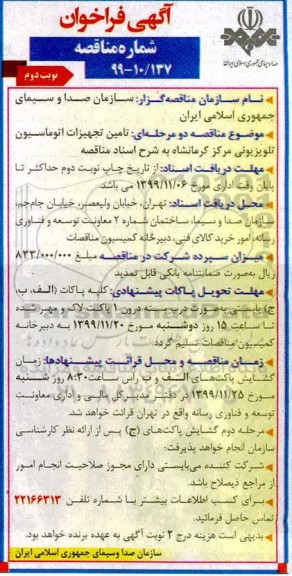 آگهی فراخوان
شماره مناقصه
۹۹-۱۰/۱۳۷
نوبت دوم
صدا و سیمای جمهوری اسلامی ایران
نـام سـازمان مناقصه‌گزار: سـازمان صـدا و سـیمای
جمهوری اسلامی ایران
موضوع مناقصه دو مرحله‌ای: تامین تجهیزات اتوماسیون
تلویزیونی مرکز کرمانشاه به شرح اسناد مناقصه
مهلت دریافت اسناد: از تاریخ چاپ نوبت دوم حداکثر تا
پایان وقت اداری مورخ ۱۳۹۹/۱۱/۰۶ می باشد.
محل دریافت اسناد: تهران، خیابان ولیعصر، خیابان جام‌جم،
سازمان صدا و سیما، ساختمان شماره ۲ معاونت توسعه و فناوری
رسانه، امور خرید کالای فنی، دبیرخانه کمیسیون مناقصات
میـزان سـپرده شرکـت در مناقصـه: مبلـغ ۸۳۳/۰۰۰/۰۰۰
ریال به‌صورت ضمانتنامه بانکی قابل تمدید
مهلـت تحویـل پـاکات پیشنهادی: کلیه پـاکات (الـف، ب،
ج) بایستـی به‌صورت دربـسته درون ۱ پاکت لاک و مهر شده
تـا ساعـت ۱۵ روز دوشـنبه مـورخ ۱۳۹۹/۱۱/۲۰ بـه دبیرخـانه
کمیسیون مناقصات تسلیم گردد.
زمـان مناقصـه و محـل قرائـت پیشنـهادها: زمـان
گشایش پاکت‌های الــف و ب راس ساعت ۸:۳۰ روز شنـبه
مـورخ ۱۳۹۹/۱۱/۲۵ در دفتـر مدیـرکل مالـی و اداری معاونت
توسعه و فناوری رسانه واقع در تهران قرائت خواهد شد.
مرحله دوم گشایش پاکت‌های (ج) پس از ارائه نظر کارشناسی
سازمان انجام خواهد پذیرفت.
شرکت کننده می‌بایستی دارای مجوز صلاحیت انجام امور
از مراجع ذیصلاح باشد.
بـرای کسـب اطلاعـات بیشتـر بـا شمـاره تلفـن ۲۲۱۶۶۳۱۳
تماس حاصل فرمائید.
بدیهی است هزینه درج ۲ نوبت آگهی به عهده برنده خواهد بود.
سازمان صدا وسیمای جمهوری اسلامی ایران